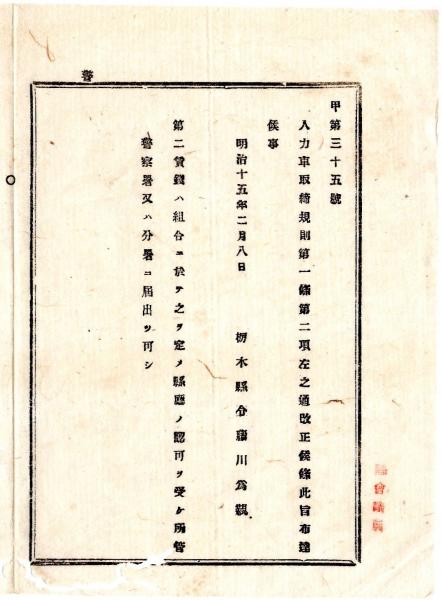 甲第三十五號
人力車取締規則第一條第二項左之通改正候條此旨布達
候事
明治十五年二月八日
栃木縣令藤川爲親
第二賃錢ハ組合ニ於テ之ヲ定メ縣廳ノ認可ヲ受ケ所管
警察署又ハ分署ニ届出ツ可シ
警